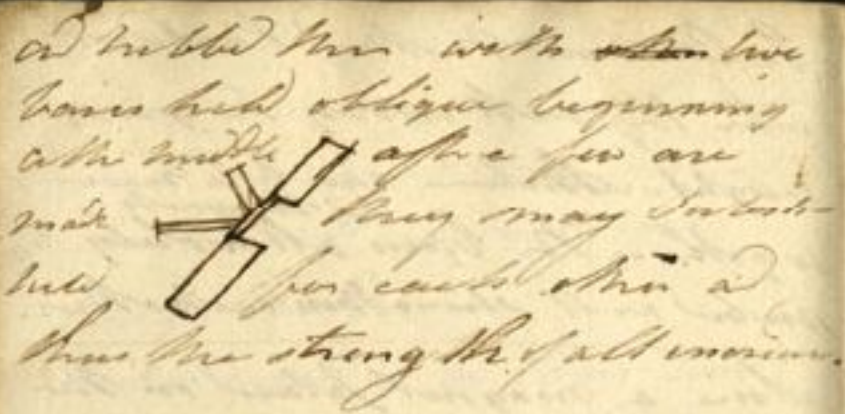 rubbed them with two
bars held oblique beginning
at the middle after a few are
made they may substi-
tuted for each other
thus the strength of all increase.